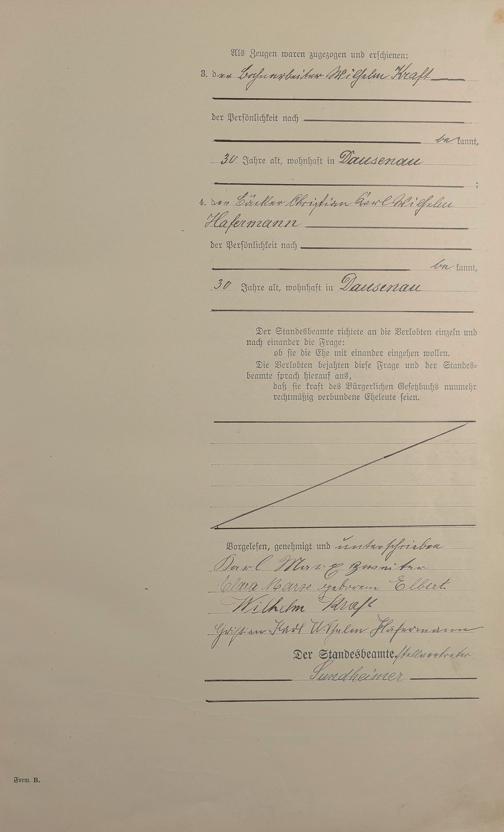 Als Zeugen waren zugezogen und erschienen:
3. der Bahnarbeiter Wilhelm Kraft
der Persönlichkeit nach
bekannt,
30 Jahre alt, wohnhaft in Dausenau
;
4. der Bäcker Christian Karl Wilhelm
Hafermann
der Persönlichkeit nach
bekannt,
30 Jahre alt, wohnhaft in Dausenau
Der Standesbeamte richtete an die Verlobten einzeln und
nach einander die Frage:
ob sie die Ehe mit einander eingehen wollen.
Die Verlobten bejahten diese Frage und der Standes-
beamte sprach hierauf aus,
daß sie kraft des Bürgerlichen Gesetzbuchs nunmehr
rechtmäßig verbundene Eheleute seien.
Vorgelesen, genehmigt und unterschrieben
Karl Marx zweiter
geborene Elbert
Wilhelm Kraft
Karl Wilhelm Hafermann
Der Standesbeamte Stellvertreter
Form. B.